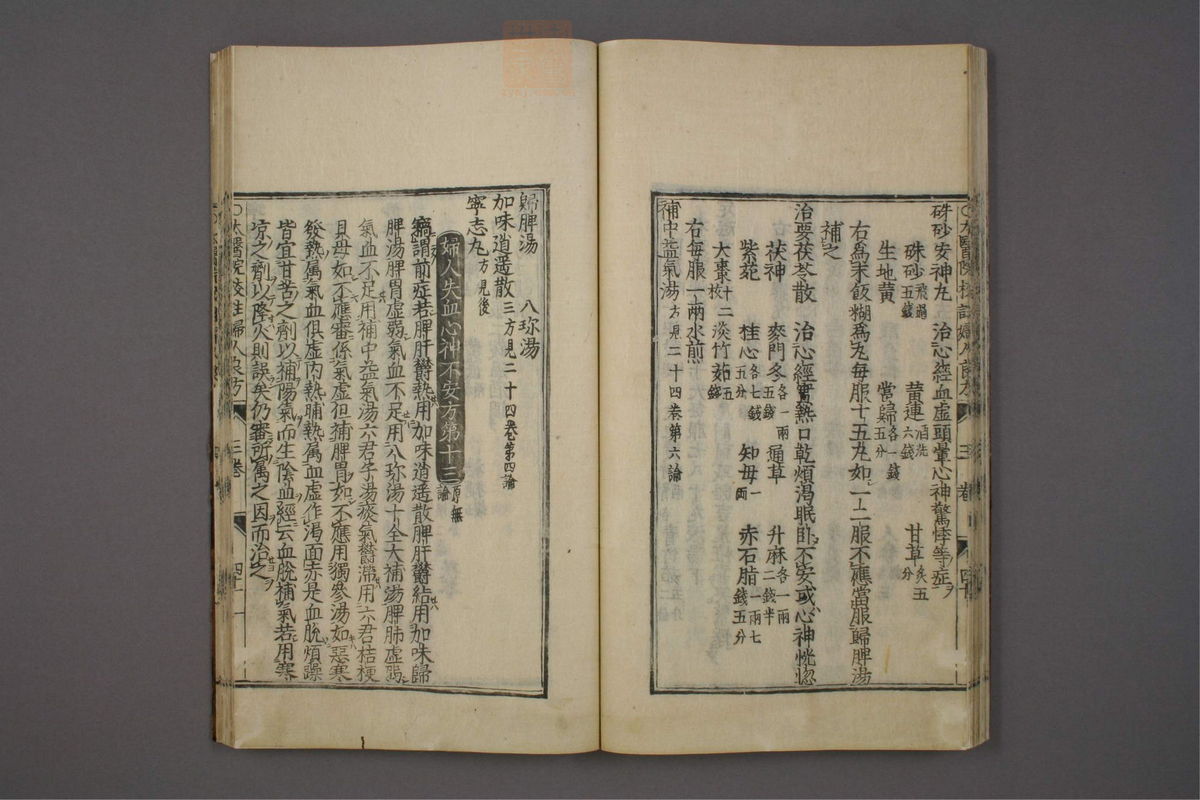 硃砂安神丸 治心經血虛頭暈心神驚悸等症
硃砂飛過五錢 黄連酒洗六錢 甘草炙五分
生地黄 當歸各一錢五分
右爲末飯糊爲丸每服十五丸如一二服不應當服歸脾湯
補之
治要茯苓散 治心經實熱口乾煩渴眠卧不安或心神恍惚
茯神 麥門冬各一兩五錢 通草 升麻各一兩二錢半
紫菀 桂心各七錢五分 知母一兩 赤石脂一兩七錢五分
大棗十二枚 淡竹茹五錢
右每服一兩水煎
補中益氣湯方見二十四卷第六論
歸脾湯 八珎湯
加味逍遥散三方見二十四卷第四論
寧志丸方見後
婦人失血心神不安方第十三原無論
竊謂前症若脾肝鬱熱用加味逍遥散脾肝鬱結用加味歸
脾湯脾胃虛弱氣血不足用八珎湯十全大補湯脾肺虛弱
氣血不足用補中益氣湯六君子湯痰氣鬱滯用六君桔梗
貝母如不應審係氣虛但補脾胃如不應用獨參湯如惡寒
發熱属氣血俱虛内熱晡熱属血虛作渴面赤是血脫煩躁
皆宜甘苦之劑以補陽氣而生陰血經云血脫補氣若用寒
凉之劑以降火則誤矣仍審所属之因而治之
○太醫院校註婦人良方 三卷 四十一